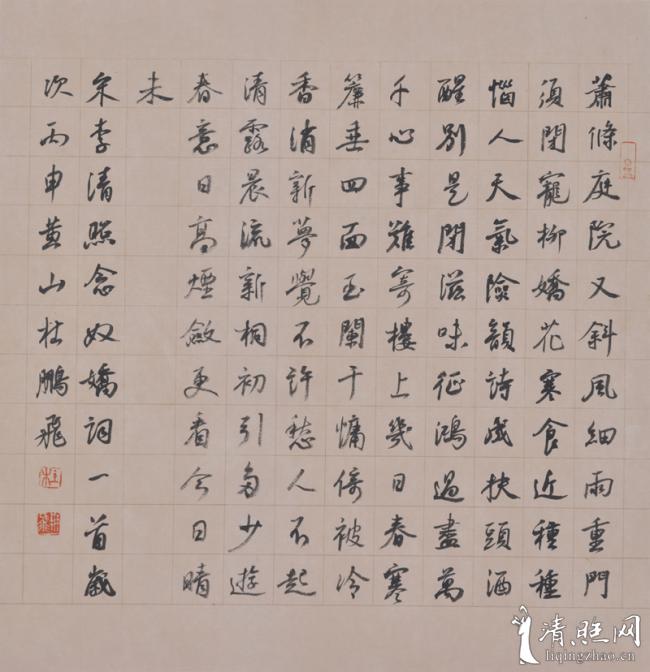 蕭條庭院又斜風細雨重門
須閉寵柳嬌花寒食近種種
惱人天氣險韻詩成扶頭酒
醒別是閒滋味征鴻過盡萬
千心事難寄樓上幾日春寒
簾垂四面玉闌干慵倚被冷
香消新夢覺不許愁人不起
清露晨流新桐初引多少遊
春意日高煙斂更看今日晴
未
宋李清照念奴嬌詞一首歲
次丙申黄山杜鵬飛
清照网
liqingzhao.cn